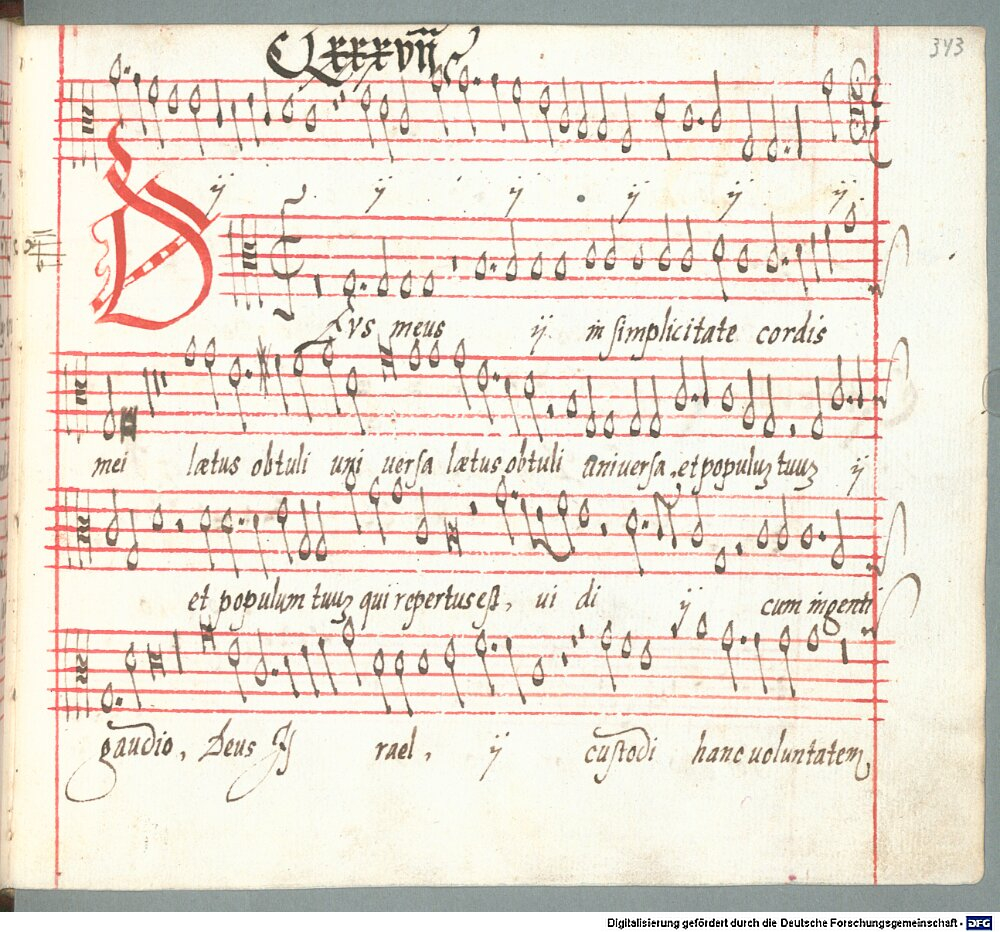 CLXXXVII
343
ij ij ij ij ij ij
Deus meus ij in simplicitate cordis
mei lætus obtuli uni versa lætus obtuli universa, et populuz tuuz ij
et populum tuuz qui repertus est, ui di ij cum ingenti
gaudio, Deus Is rael, ij custodi hanc uoluntatem
Digitalisierung gefördert durch die Deutsche Forschungsgemeinschaft - DFG